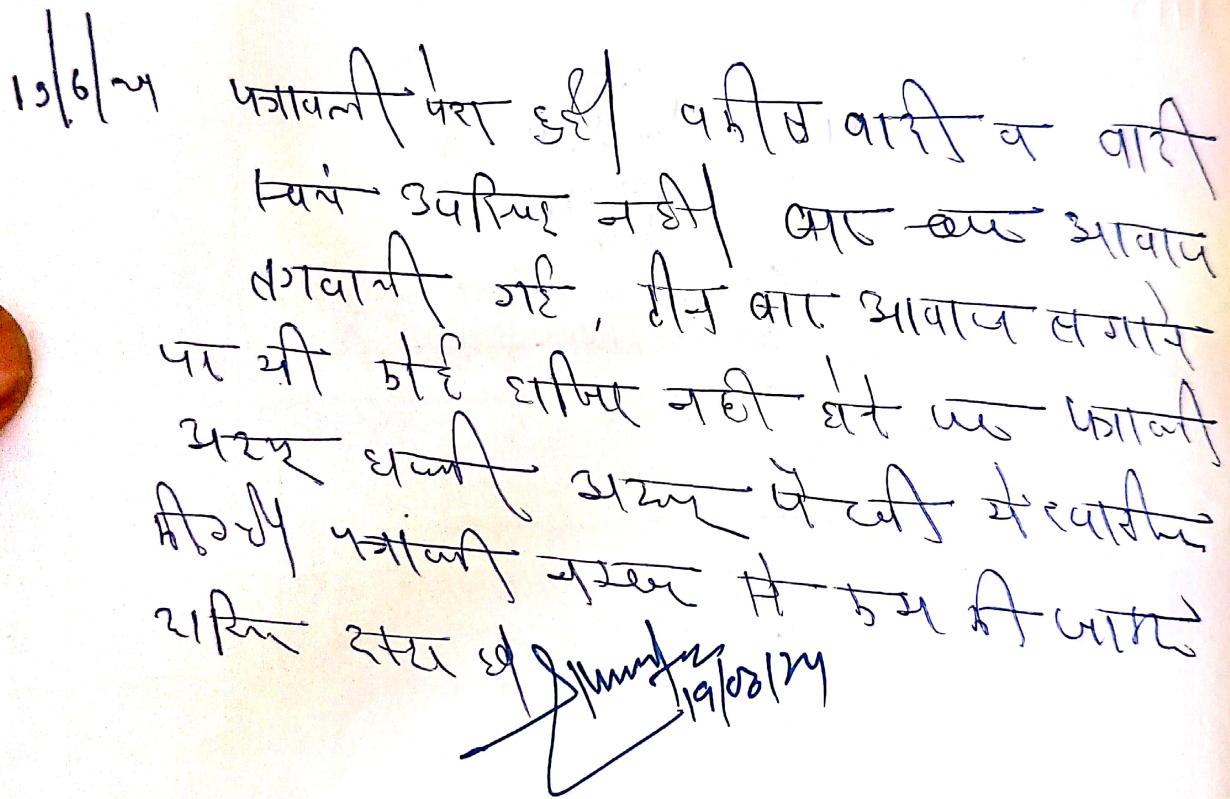 19/6/24 पत्रावली पेश हुई। वकील वादी व वादी
स्वयं उपस्थित नहीं। बार बार आवाज
लगवायी गई, तीन बार आवाज लगाने
पर भी कोई हाजिर नहीं होने पर पत्रावली
अदम पैरवी में खारीज
की गयी। पत्रावली नम्बर से कम की जाकर
दाखिल दफ्तर हो।
19/06/24